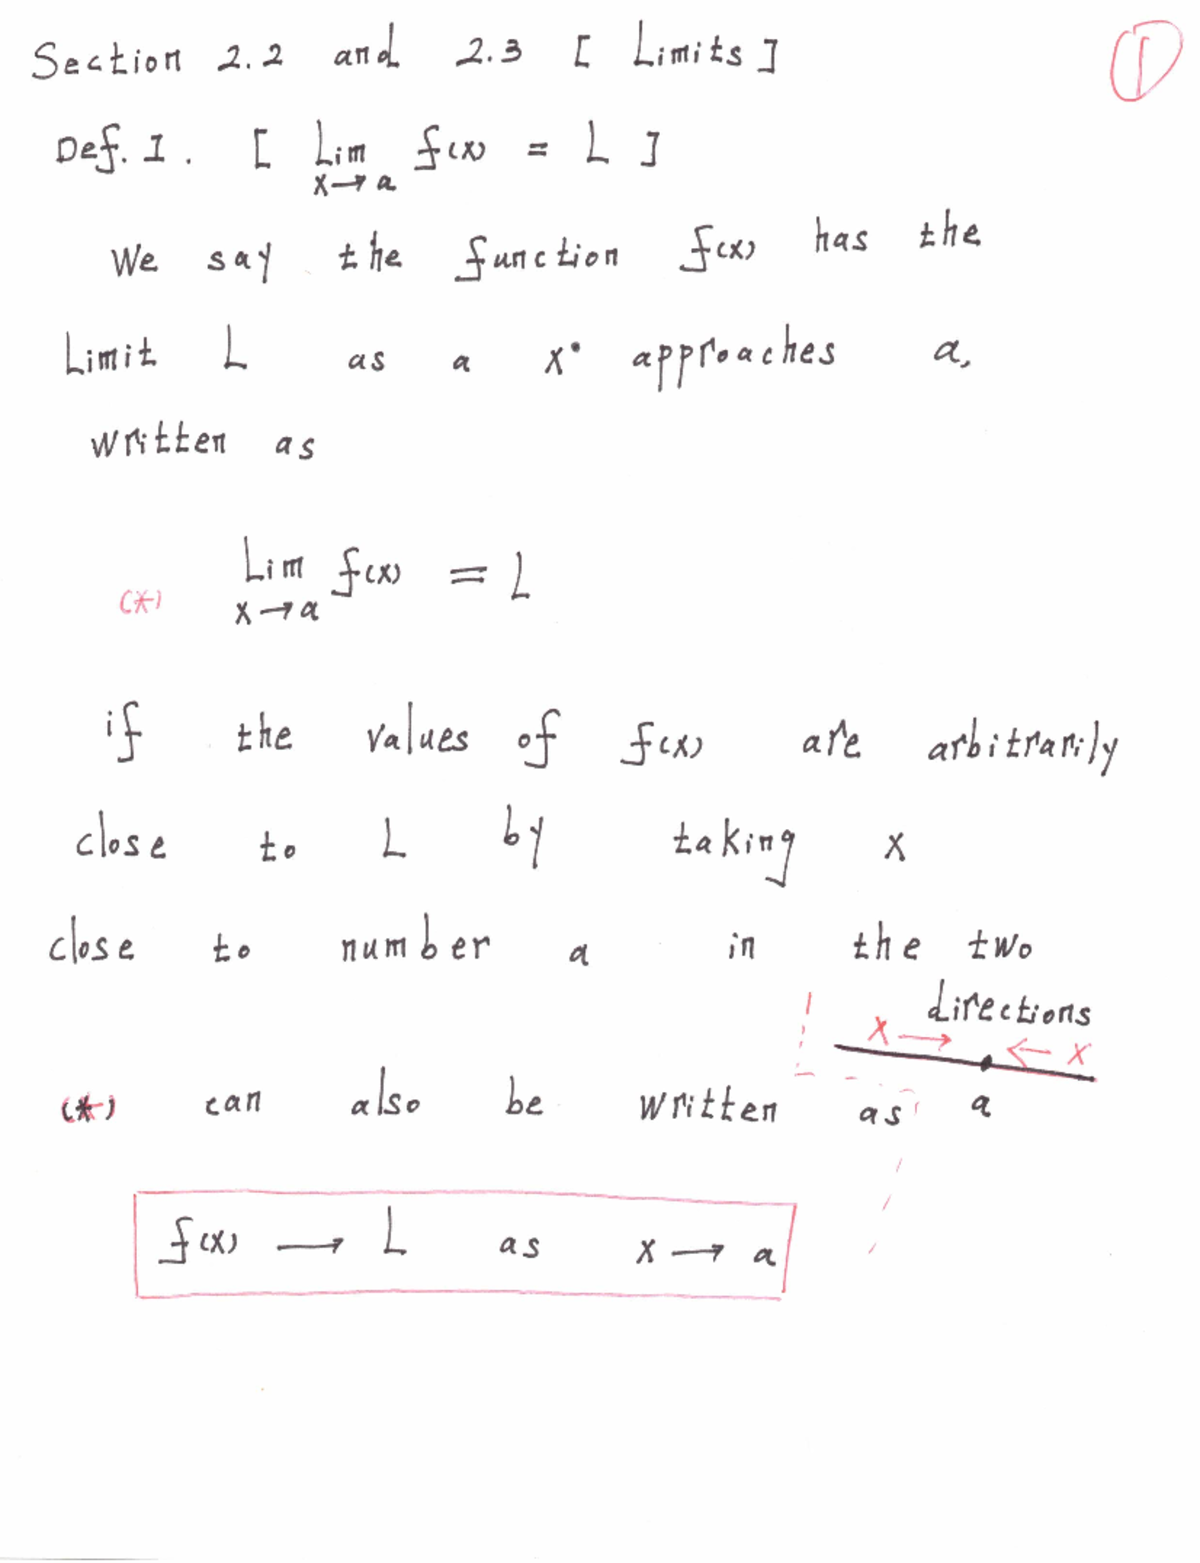 Section 2.2 and 2.3 [ Limits ]
1
Def. 1. [ Lim f(x) = L ]
x→a
We say the function f(x) has the
Limit L as a x approaches a,
written as
Lim f(x) = L
(*) x→a
if the values of f(x) are arbitrarily
close to L by taking x
close to number a in the two
directions
x → ← x
(*) can also be written as a
f(x) → L as x → a